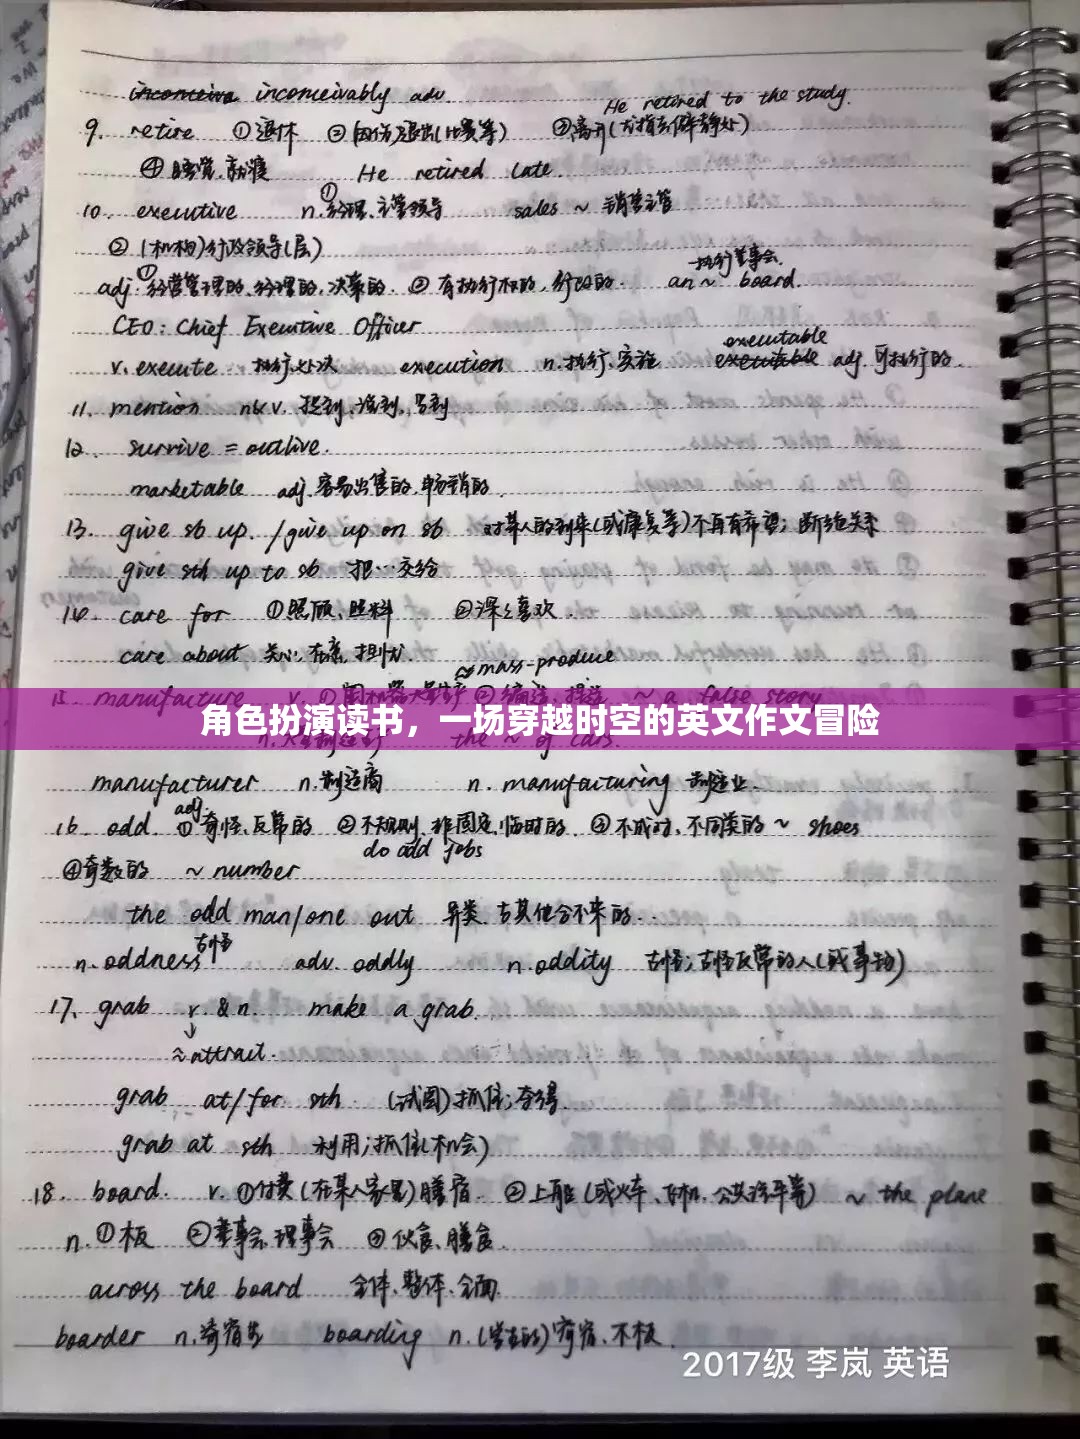 inconceiva inconceivably adv.
He retired to the study.
9. retire ①退休 ②因伤退出(比赛等) ③离开(尤指去僻静处)
④睡觉,就寝 He retired late.
10. executive n.①经理、主管领导 sales ~ 销售主管
②(机构)行政领导(层)
执行董事会
adj.①经营管理的、经理的,决策的. ②有执行权的,行政的. an ~ board.
CEO: Chief Executive Officer
executable
v. execute 执行,处决 execution n.执行、实施 adj.可执行的.
11. mention n&v. 提到,谈到,写到
12. survive = outlive.
marketable adj.容易出售的,畅销的.
13. give sb up. /give up on sb 对某人的到来(或康复等)不再有希望; 断绝关系
give sth up to sb 把…交给
14. care for ①照顾、照料 ②深深喜欢.
care about 关心,在意,担忧.
≈ mass-produce
15. manufacture v. ①用机器大量生产 ②编造、捏造 ~ a false story
角色扮演读书，一场穿越时空的英文作文冒险
the ~ of cars.
manufacturer n.制造商 n. manufacturing 制造业.
16. odd. adj. ①奇怪,反常的 ②不规则,非固定,临时的. ③不成对,不同类的 ~ shoes
do odd jobs
④奇数的 ~ number
the odd man/one out 异类,与其他合不来的..
n. oddness古怪 adv. oddly n. oddity 古怪;古怪反常的人(或事物)
17. grab v. & n. make a grab.
≈ attract.
grab at/for sth. (试图)抓住;夺得.
grab at sth 利用;抓住(机会)
18. board. v. ①付费(在某人家里)膳宿. ②上船(或火车、飞机、公共汽车等) ~ the plane
n. ①板 ②董事会,理事会 ③伙食、膳食.
across the board 全体、整体、全面.
boarder n.寄宿生 boarding n.(学生的)寄宿、木板.
2017级 李岚 英语